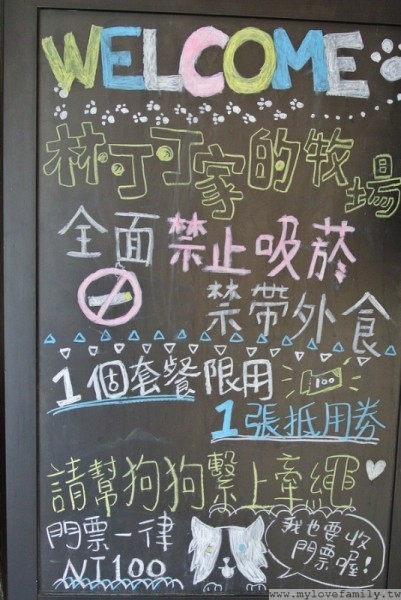 WELCOME
林丁丁家的牧場
全面禁止吸菸
禁帶外食
1個套餐限用
100
1張抵用券
請幫狗狗繫上牽繩
門票一律
NT100
我也要收
門票喔!
www.mylovefamily.tw